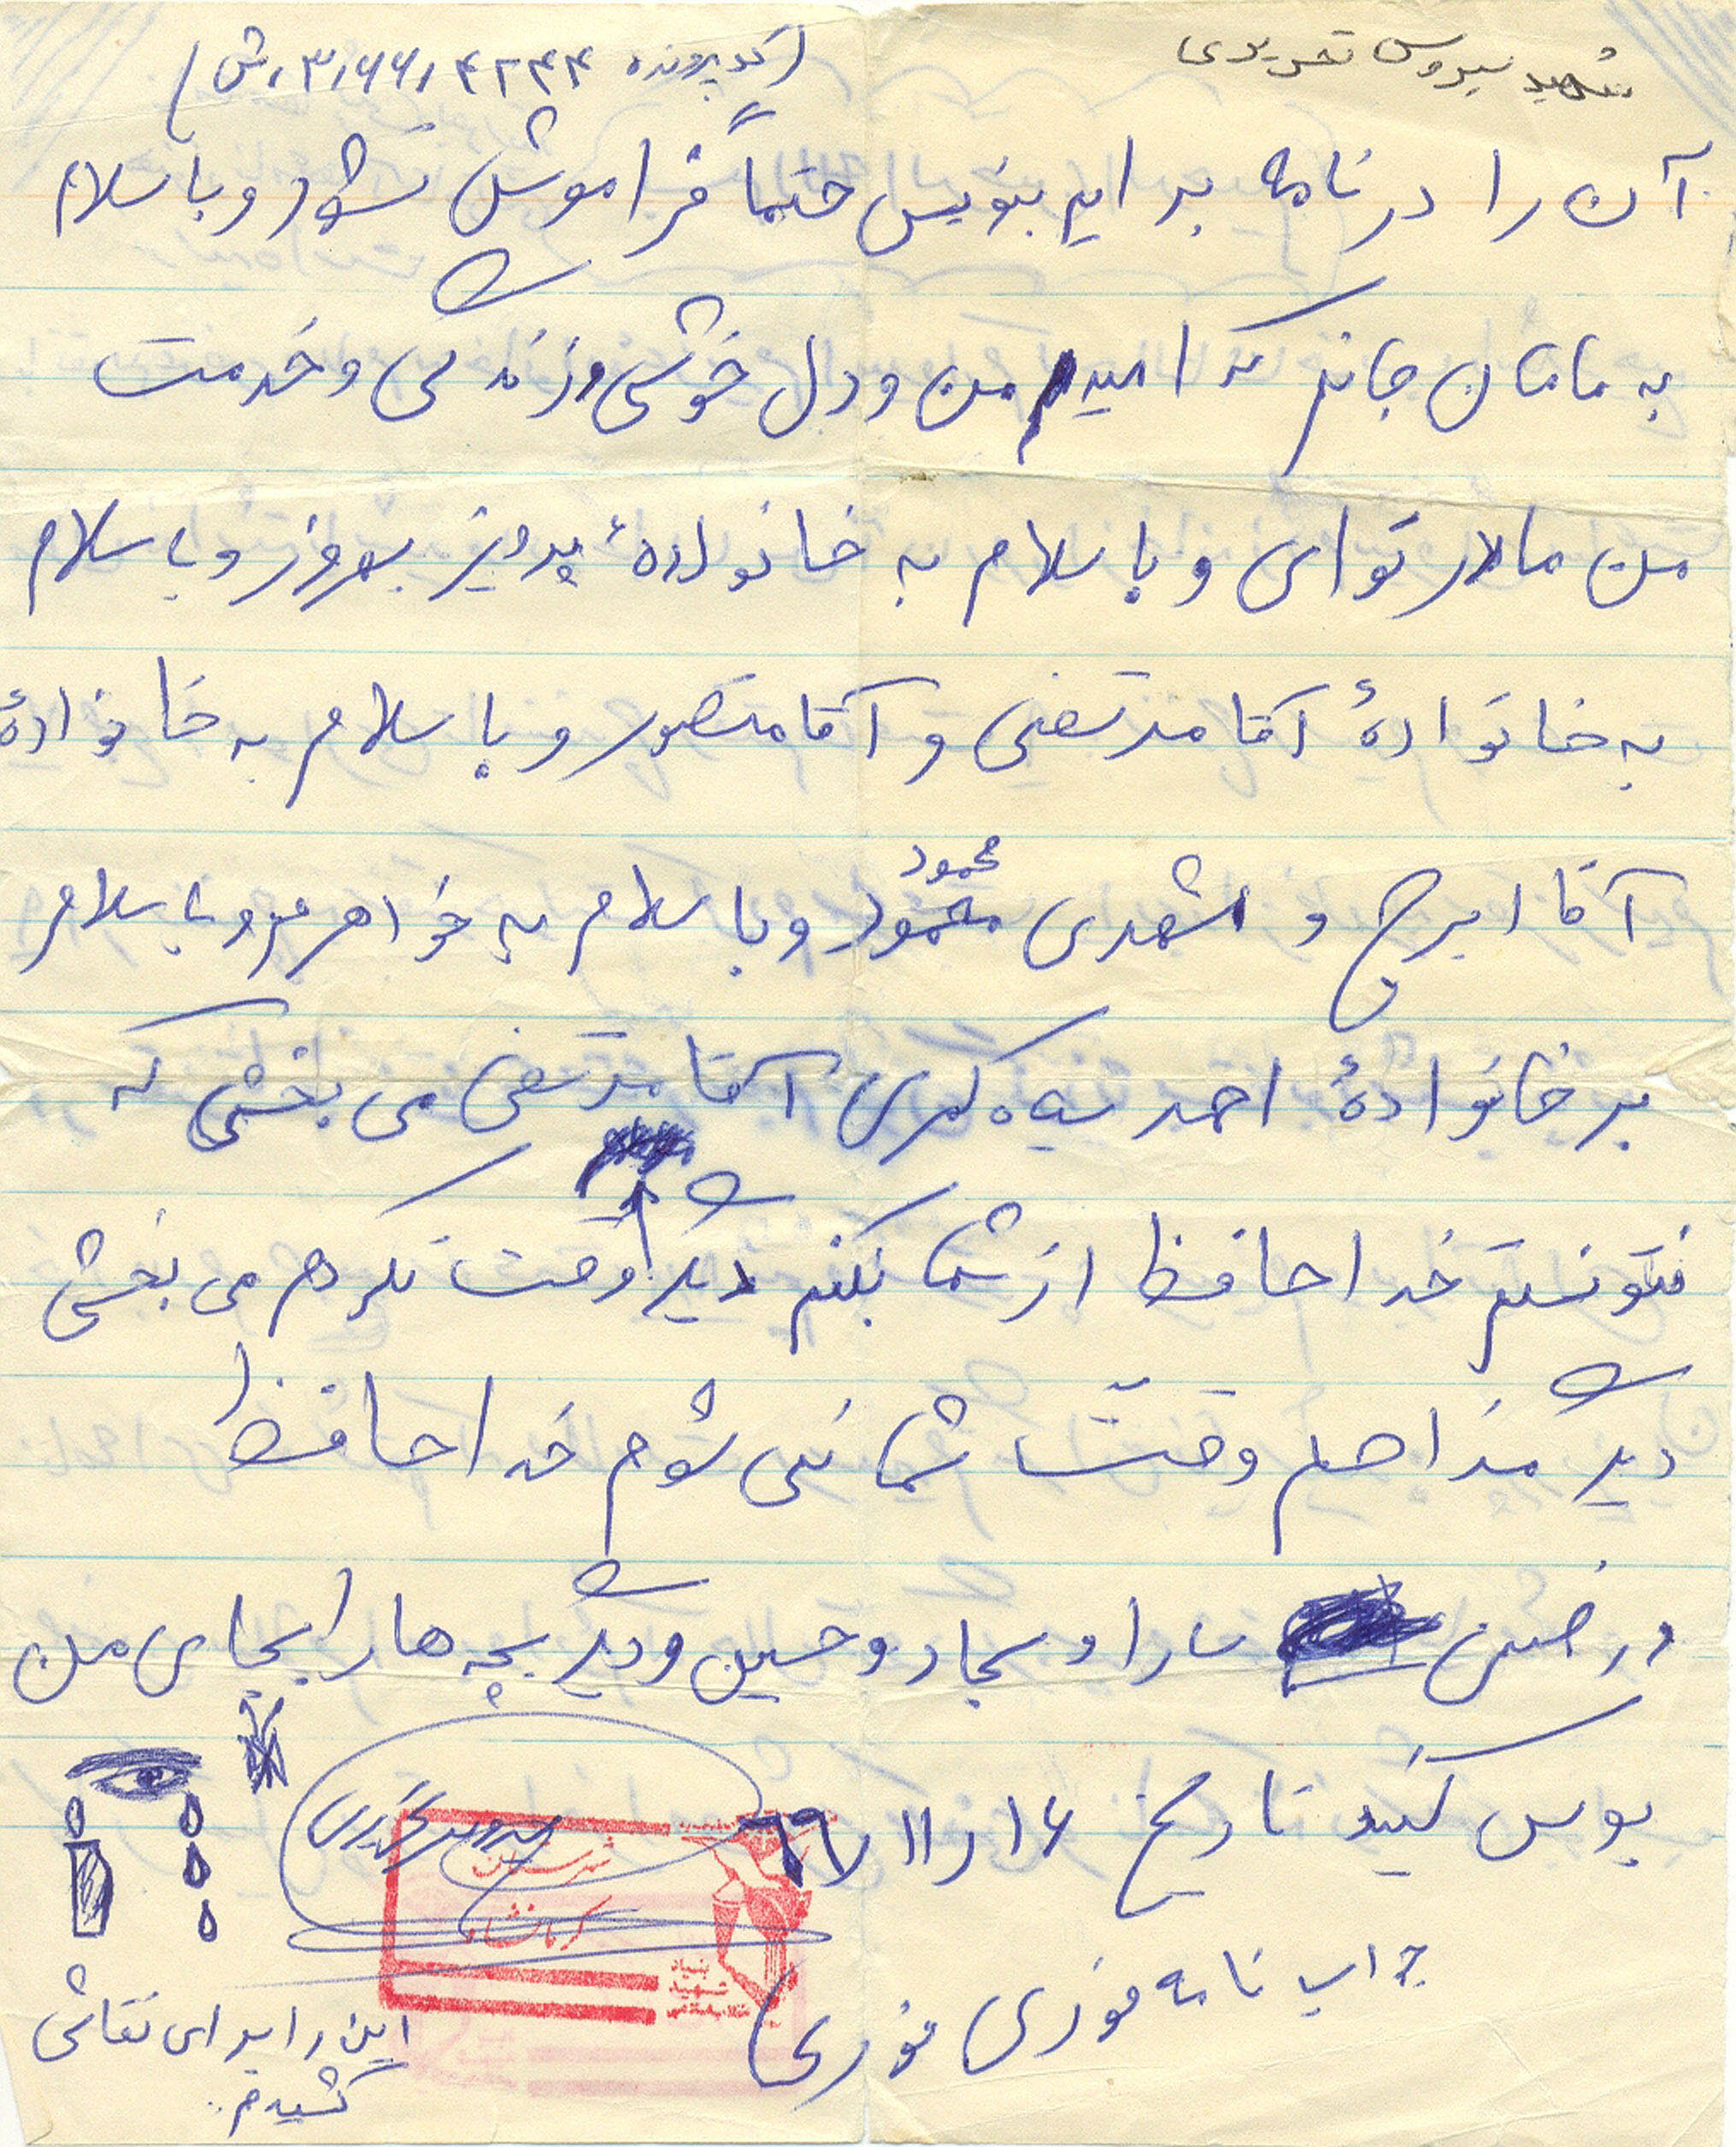 شهید سیروس تحریری
(کد پرونده ۳٫۶۶٫۴۲۴۴٫ش)
آن را در نامه برایم بنویس حتماً فراموش نشود و با سلام
به مامان جانم که امید من و دل خوشی و زندگی و خدمت
من مادر توای و با سلام به خانوادهٔ پرویز بهروز و با سلام
به خانوادهٔ آقا مرتضی و آقا منصور و با سلام به خانوادهٔ
آقا ایرج و مشهدی محمود محمود و با سلام به خواهرم و با سلام
بر خانوادهٔ احمد سیه کمری آقا مرتضی می بخشی که
نتونستم خدا حافظ از شما بکنم دیگر وقت نکردم می بخشی
دیگر مزاهم وقت شما نمی شوم خدا حافظ
در ضمن سارا و سجاد و حسین و دیگر بچه ها را بجای من
بوس کنید تاریخ ۱۶ر۱۱ر۶۶
جواب نامه فوری فوری
کرمانشاه
بنیاد
شهید
این را برای نقاشی
کشیدم